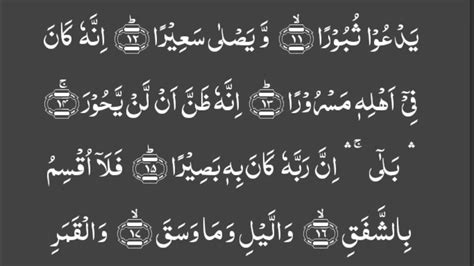 يَدْعُوْا ثُبُوْرًا ۙ‏﴿۱۱﴾ وَّيَصْلٰى سَعِيْرًا ؕ‏﴿۱۲﴾ اِنَّهٗ كَانَ
فِىْۤ اَهْلِهٖ مَسْرُوْرًا ؕ‏﴿۱۳﴾ اِنَّهٗ ظَنَّ اَنْ لَّنْ يَّحُوْرَ ۛۚ‏﴿۱۴﴾
بَلٰٓى ۛۚ اِنَّ رَبَّهٗ كَانَ بِهٖ بَصِيْرًا ؕ‏﴿۱۵﴾ فَلَاۤ اُقْسِمُ
بِالشَّفَقِ ۙ‏﴿۱۶﴾ وَالَّيْلِ وَمَا وَسَقَ ۙ‏﴿۱۷﴾ وَالْقَمَرِ